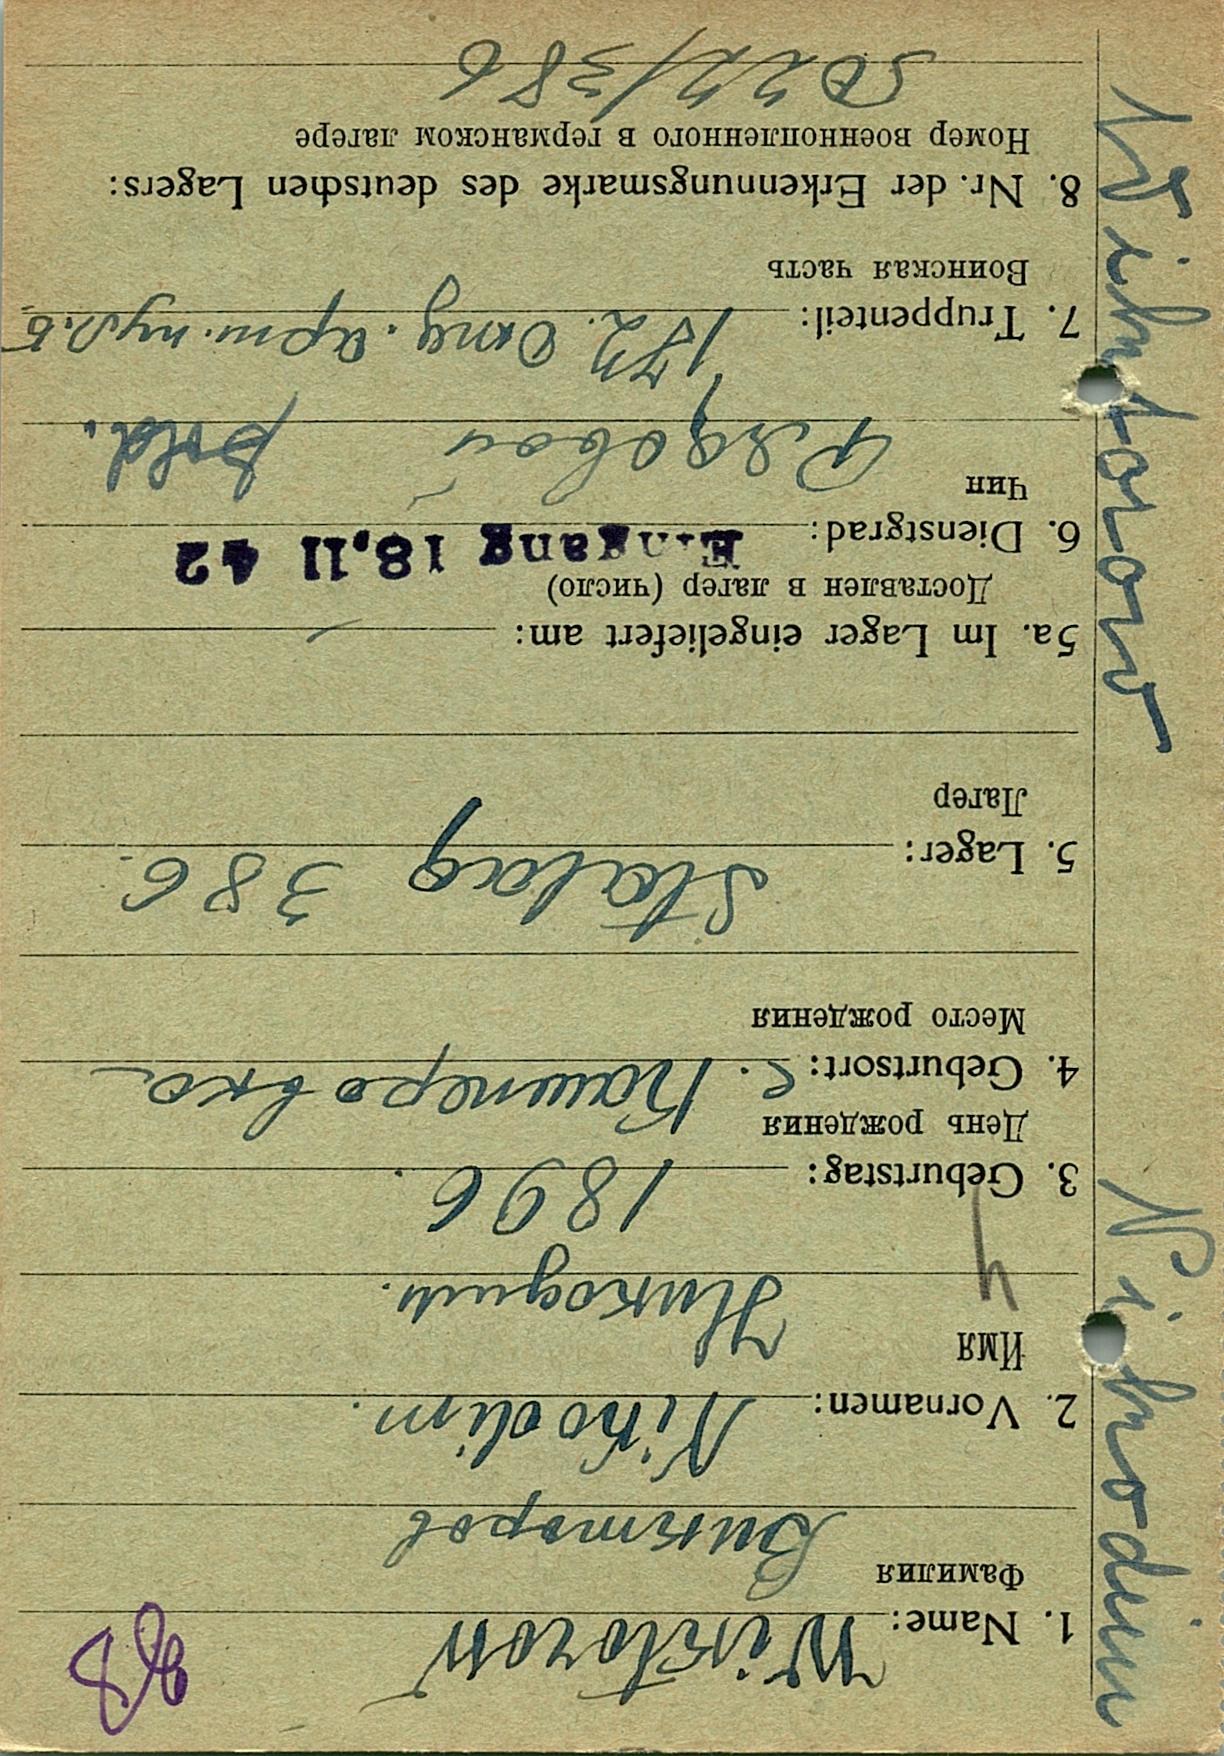 Wiktorow Nikodim
1. Name: Wiktorow
Фамилия
Викторов
2. Vornamen: Nikodim.
Имя
Никодим.
3. Geburtstag: 1896.
День рождения
4. Geburtsort: с. Кашперовка
Место рождения
5. Lager: Stalag 386.
Лагер
5a. Im Lager eingeliefert am:
Доставлен в лагер (число)
Eingang 18.11 42
6. Dienstgrad:
Чин
Рядовой Sold.
7. Truppenteil: 172. отд. арт. пул. б
Воинская часть
8. Nr. der Erkennungsmarke des deutschen Lagers:
Номер военнопленного в германском лагере
/386